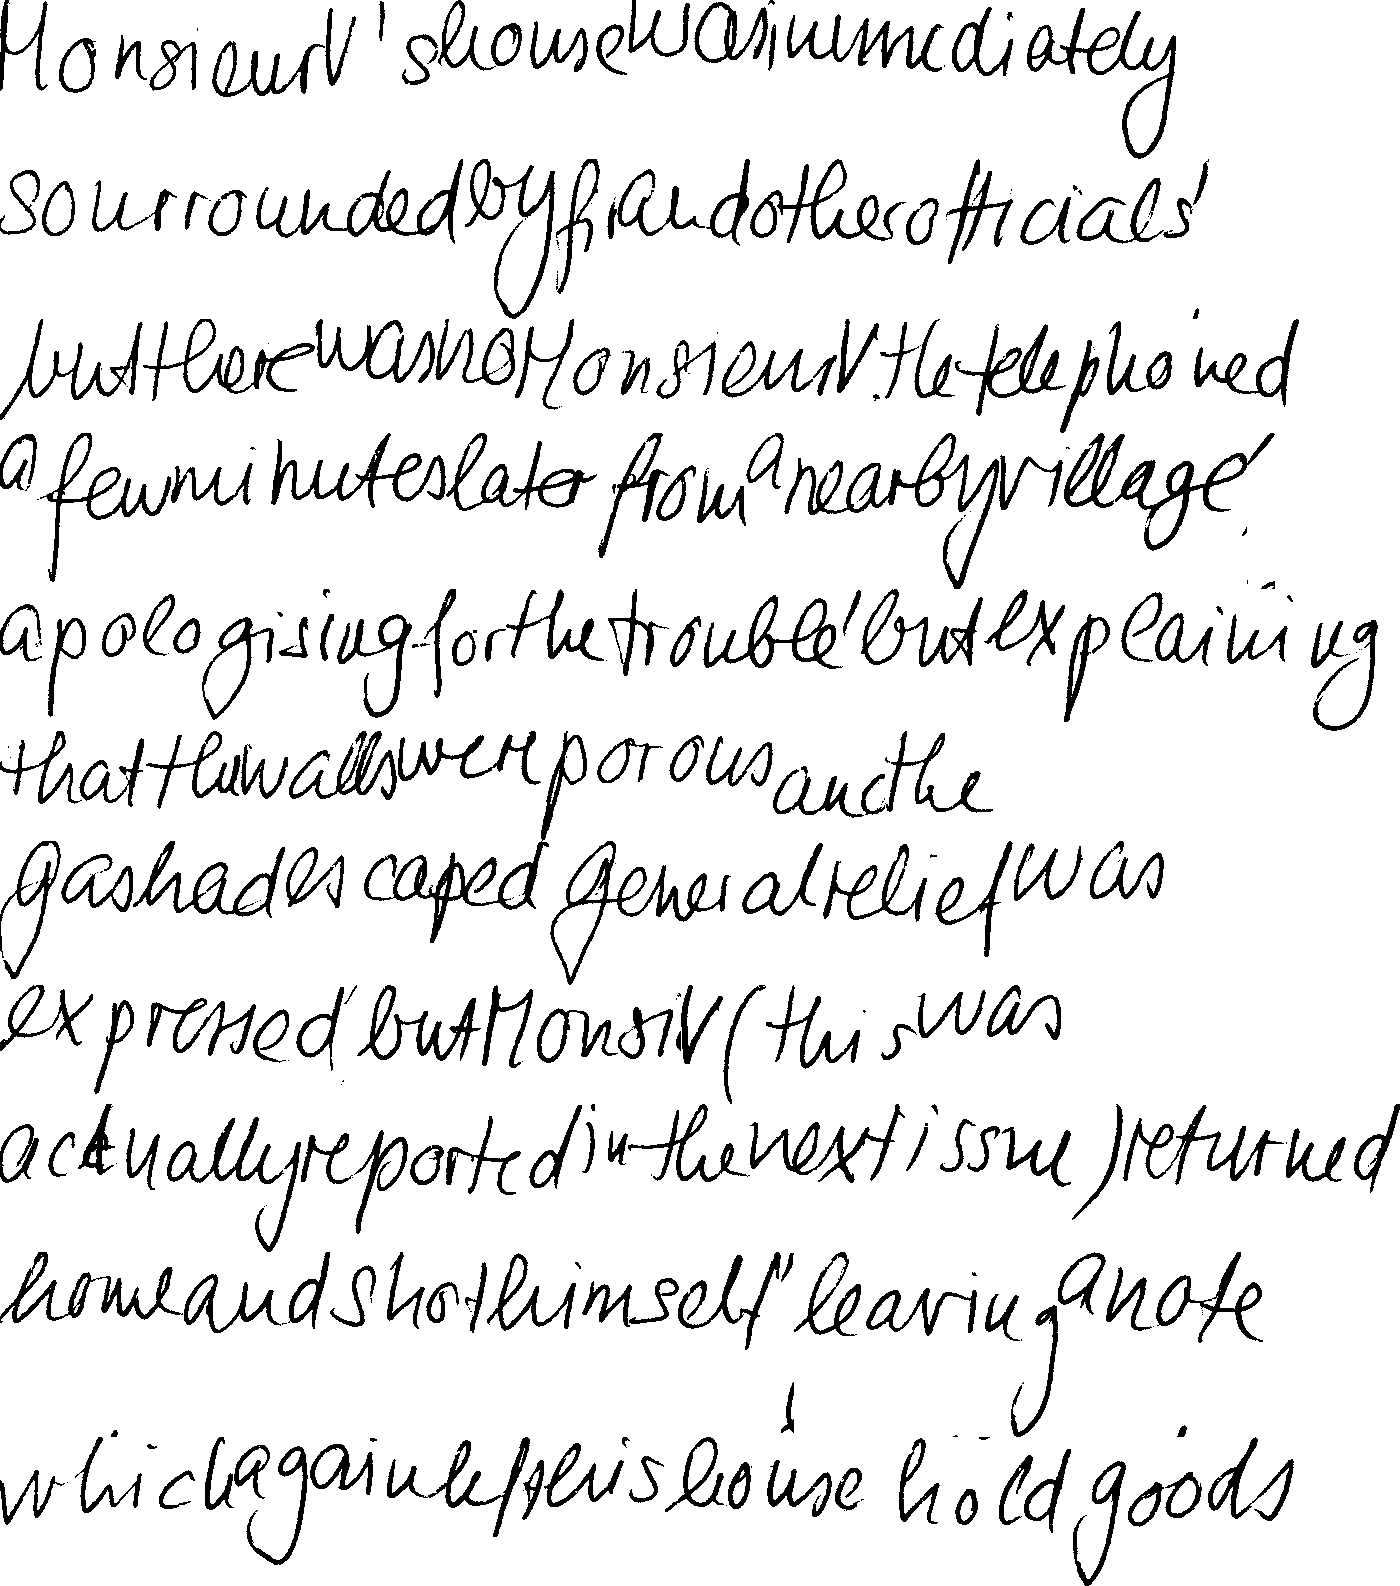 Monsieur V's house was immediately
sourrounded by fir and other officials,
but there was no Monsieur V. He telephoned
a few minutes later from a nearby village,
apologising for the trouble, but explaining
that the walls were porous and the
gas had escaped general relief was
expressed, but Monsir V (this was
actually reported in the next issue) returned
home and shot himself, leaving a note
which again left his household goods